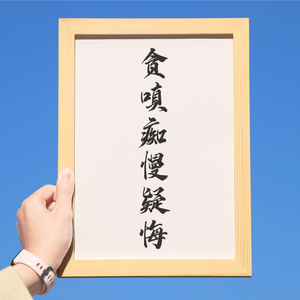 貪嗔痴慢疑悔